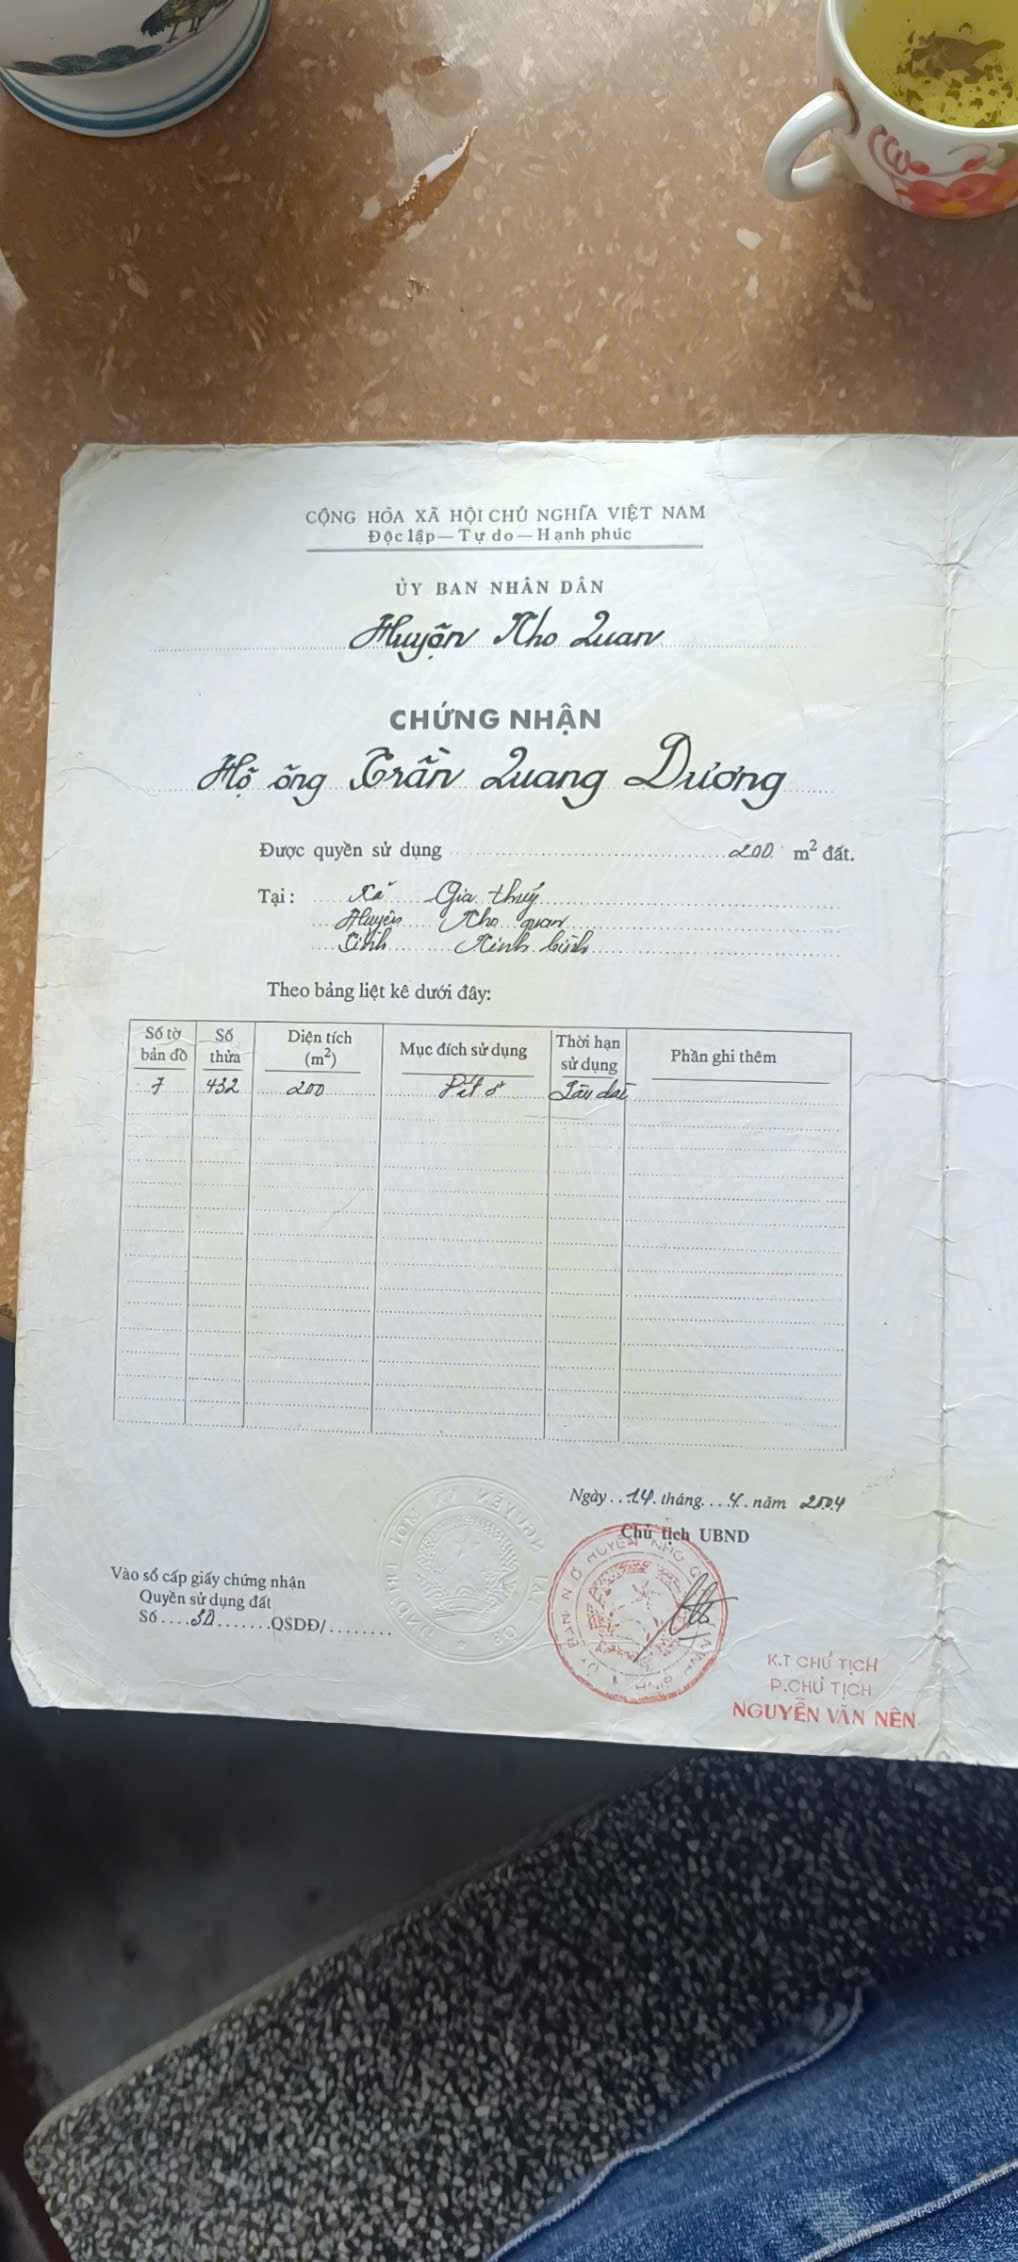 CỘNG HÒA XÃ HỘI CHỦ NGHĨA VIỆT NAM
Độc lập — Tự do — Hạnh phúc
ỦY BAN NHÂN DÂN
Huyện Nho Quan
CHỨNG NHẬN
Hộ ông Trần Quang Dương
Được quyền sử dụng 200 m² đất.
Tại: Xã Gia thuỷ
Huyện Nho quan
Tỉnh Ninh bình
Theo bảng liệt kê dưới đây:
Số tờ bản đồ Số thửa Diện tích (m²) Mục đích sử dụng Thời hạn sử dụng Phần ghi thêm
7 432 200 Đất ở Lâu dài
Ngày 14 tháng 4 năm 2004
Chủ tịch UBND
Vào sổ cấp giấy chứng nhận
Quyền sử dụng đất
Số QSDĐ/
K.T CHỦ TỊCH
P.CHỦ TỊCH
NGUYỄN VĂN NÊN